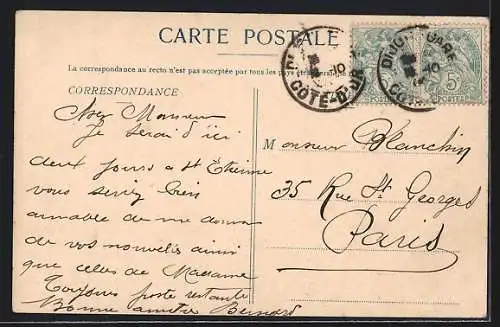 CARTE POSTALE
La correspondance au recto n'est pas acceptée par tous les pays
CORRESPONDANCE
Cher Monsieur
Je serai d'ici
deux jours a St Etienne
vous seriez bien
aimable de me donner
de vos nouvelles ainsi
que celles de Madame
Toujours poste restante
Bonne Bernard
Monsieur Blanchin
35 Rue St Georges
Paris
DIJON GARE
COTE-D'OR
10
5
POSTES